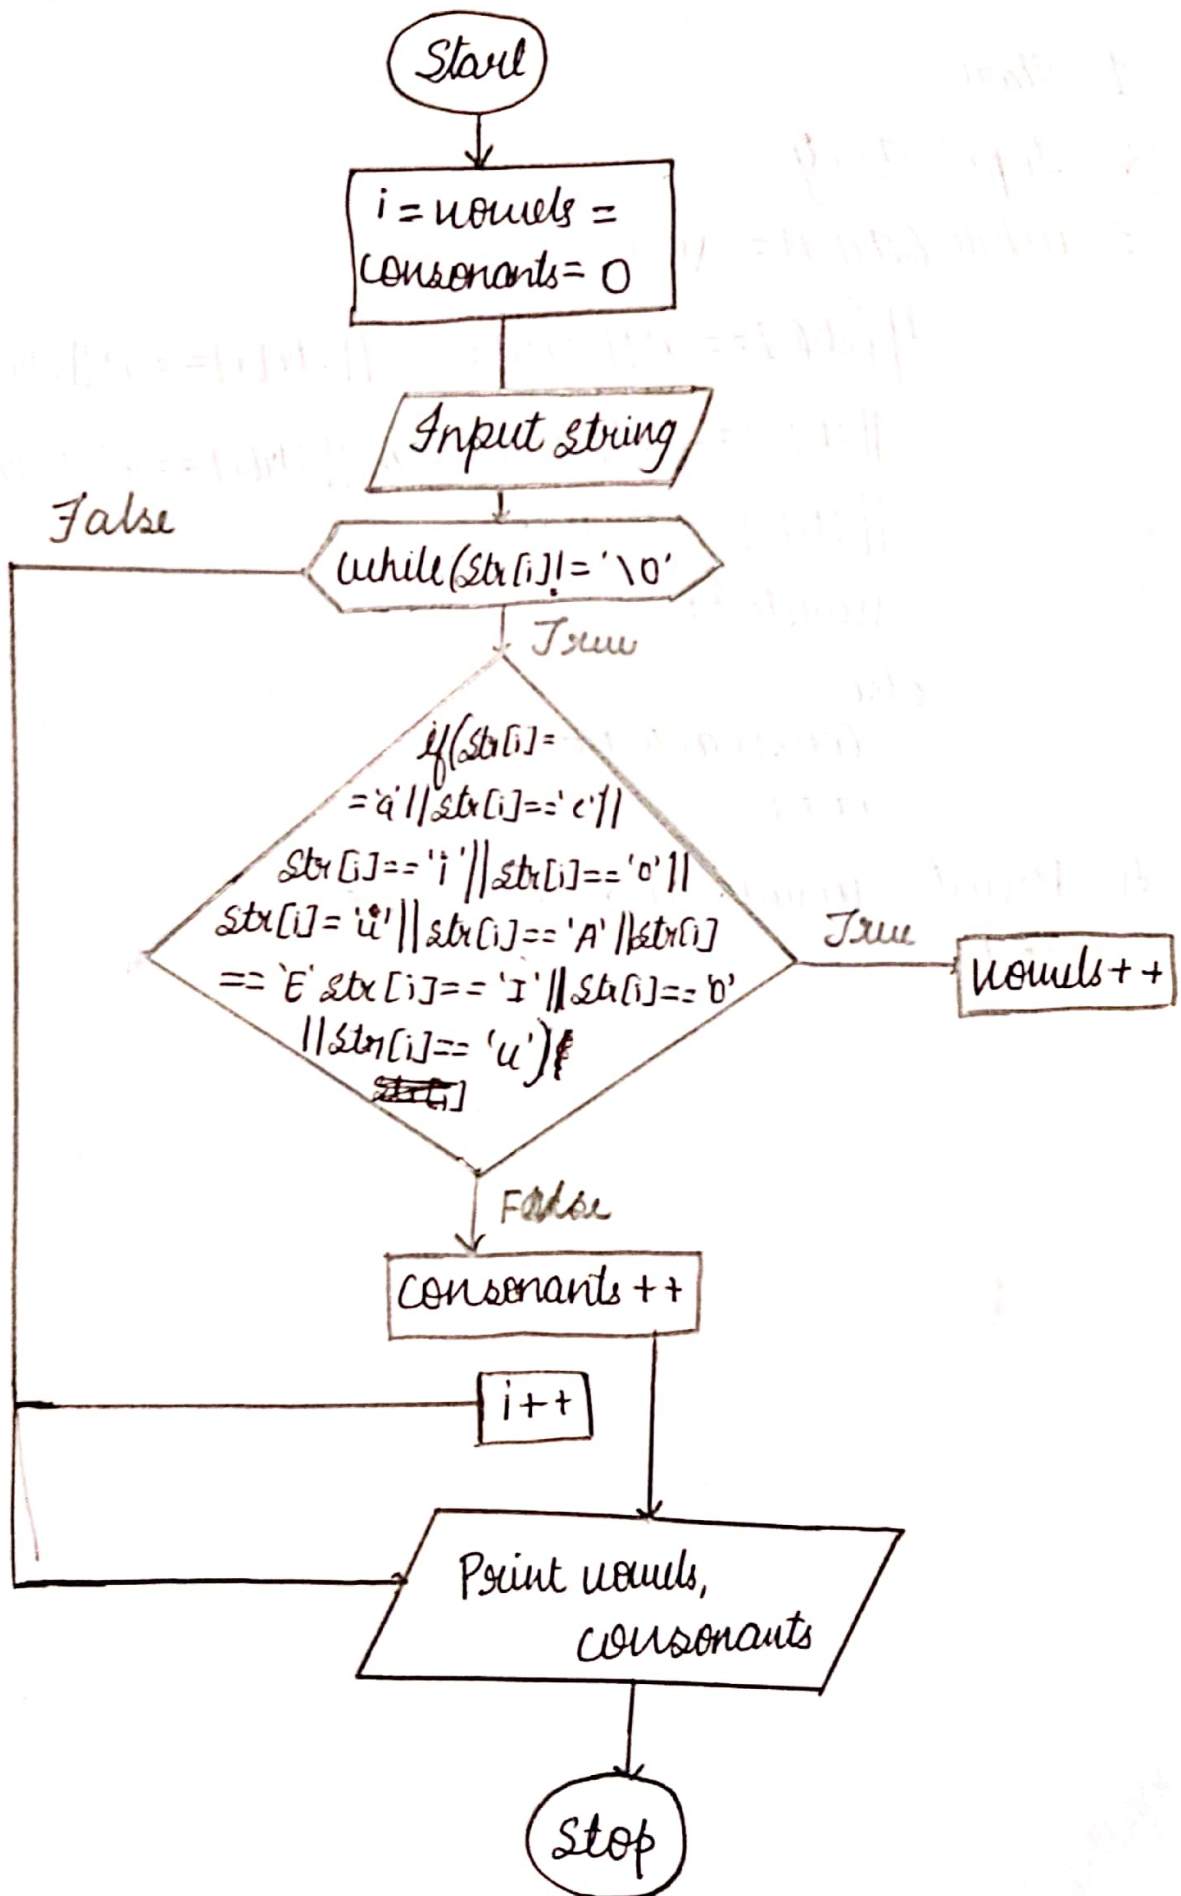 Start
i = vowels =
consonants = 0
Input string
False
while(str[i]!='\0'
True
if(str[i]=
='a'||str[i]=='e'||
str[i]=='i'||str[i]=='o'||
str[i]='u'||str[i]=='A'||str[i]
=='E' str[i]=='I'||str[i]=='O'
||str[i]=='U')
True
vowels++
False
consonants++
i++
Print vowels,
consonants
Stop